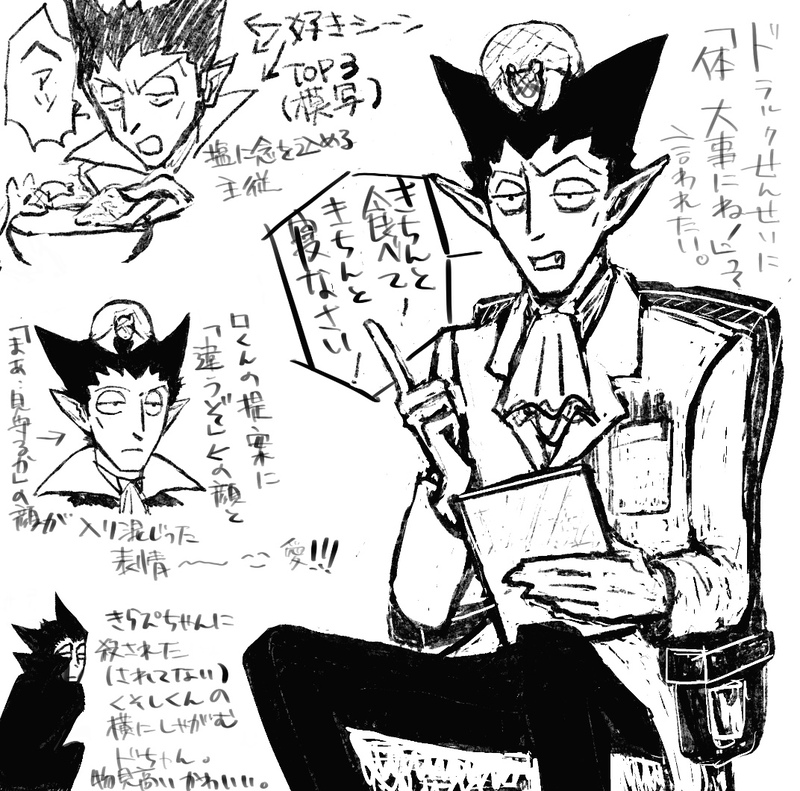 ドラルクせんせいに
「体 大事にね！」って
言われたい。
好きシーン
TOP3
(模写)
ヘアッ
塩に念を込める
主従
きちんと
食べて！
きちんと
寝なさい！
ロくんの提案に
「違うぞ」の顔と
「まぁ…見守るか」の顔が
入り混じった
表情〜〜 愛!!!
きらぴちゃんに
殺された
(されてない)
くそしくんの
横にしゃがむ
ドちゃん。
物見高いかわいい。